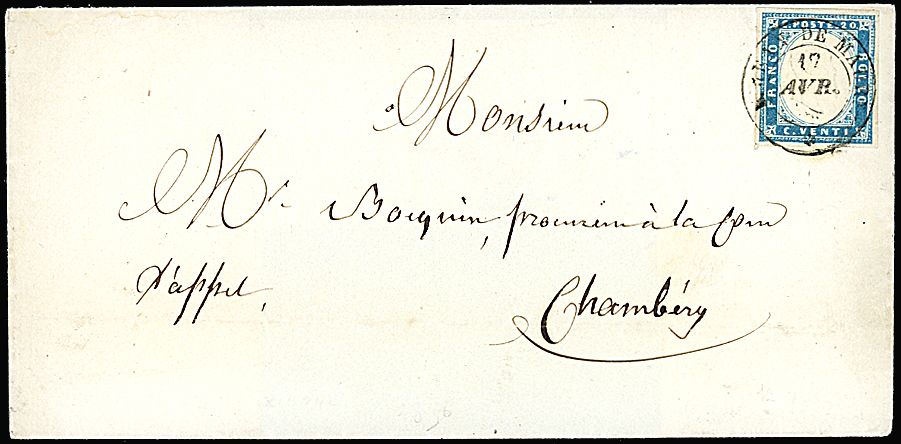 FRANCO POSTE 20 BOLLO
C. VENTI
DE MA
17
AVR.
à Monsieur
Mr. Bocquin, procureur à la Cour
d'appel,
Chambéry